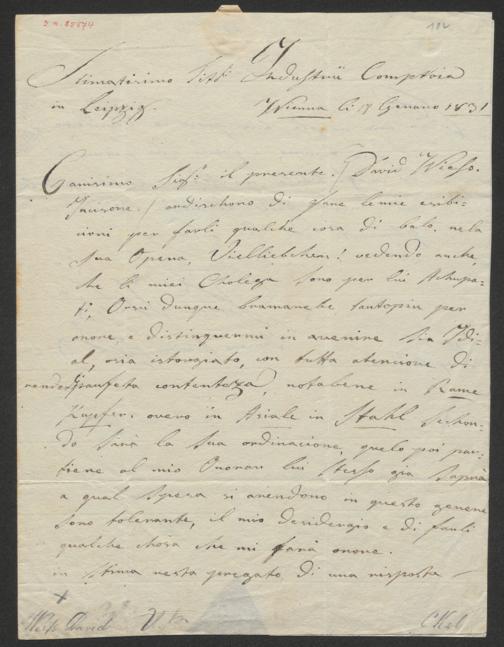 I.N. 85574
182
Stimatisimo Sigr Industrü Comptoir
in Leipzig. Vienna li 17 Genaro 1831
Carisimo Sigr il presente. / David Weiss.
/ ardirchono di fare le mie esibi-
cioni per farli qualche cosa di belo, nela
Sua Opera, Vielliebchen! vedendo anche
che li miei Cholega sono per lui
ti, dunque per
onore, e distinguermi in avenire sia Idi-
al, osia istoriato, con tutta atencione di
render parfeta contenteza, notabene in Rame
Kupfer. overo in Aziale in Stahl Secon-
do sarà la Sua ordinacione, quelo poi par-
tiene al mio Onorari lui stesso già saprà
a qual spera si arendono in questo genere
sono tolerante, il mio desidergio e di farli
qualche chosa che mi farà onore.
in stima resta pregato di una risposta
Weiss David